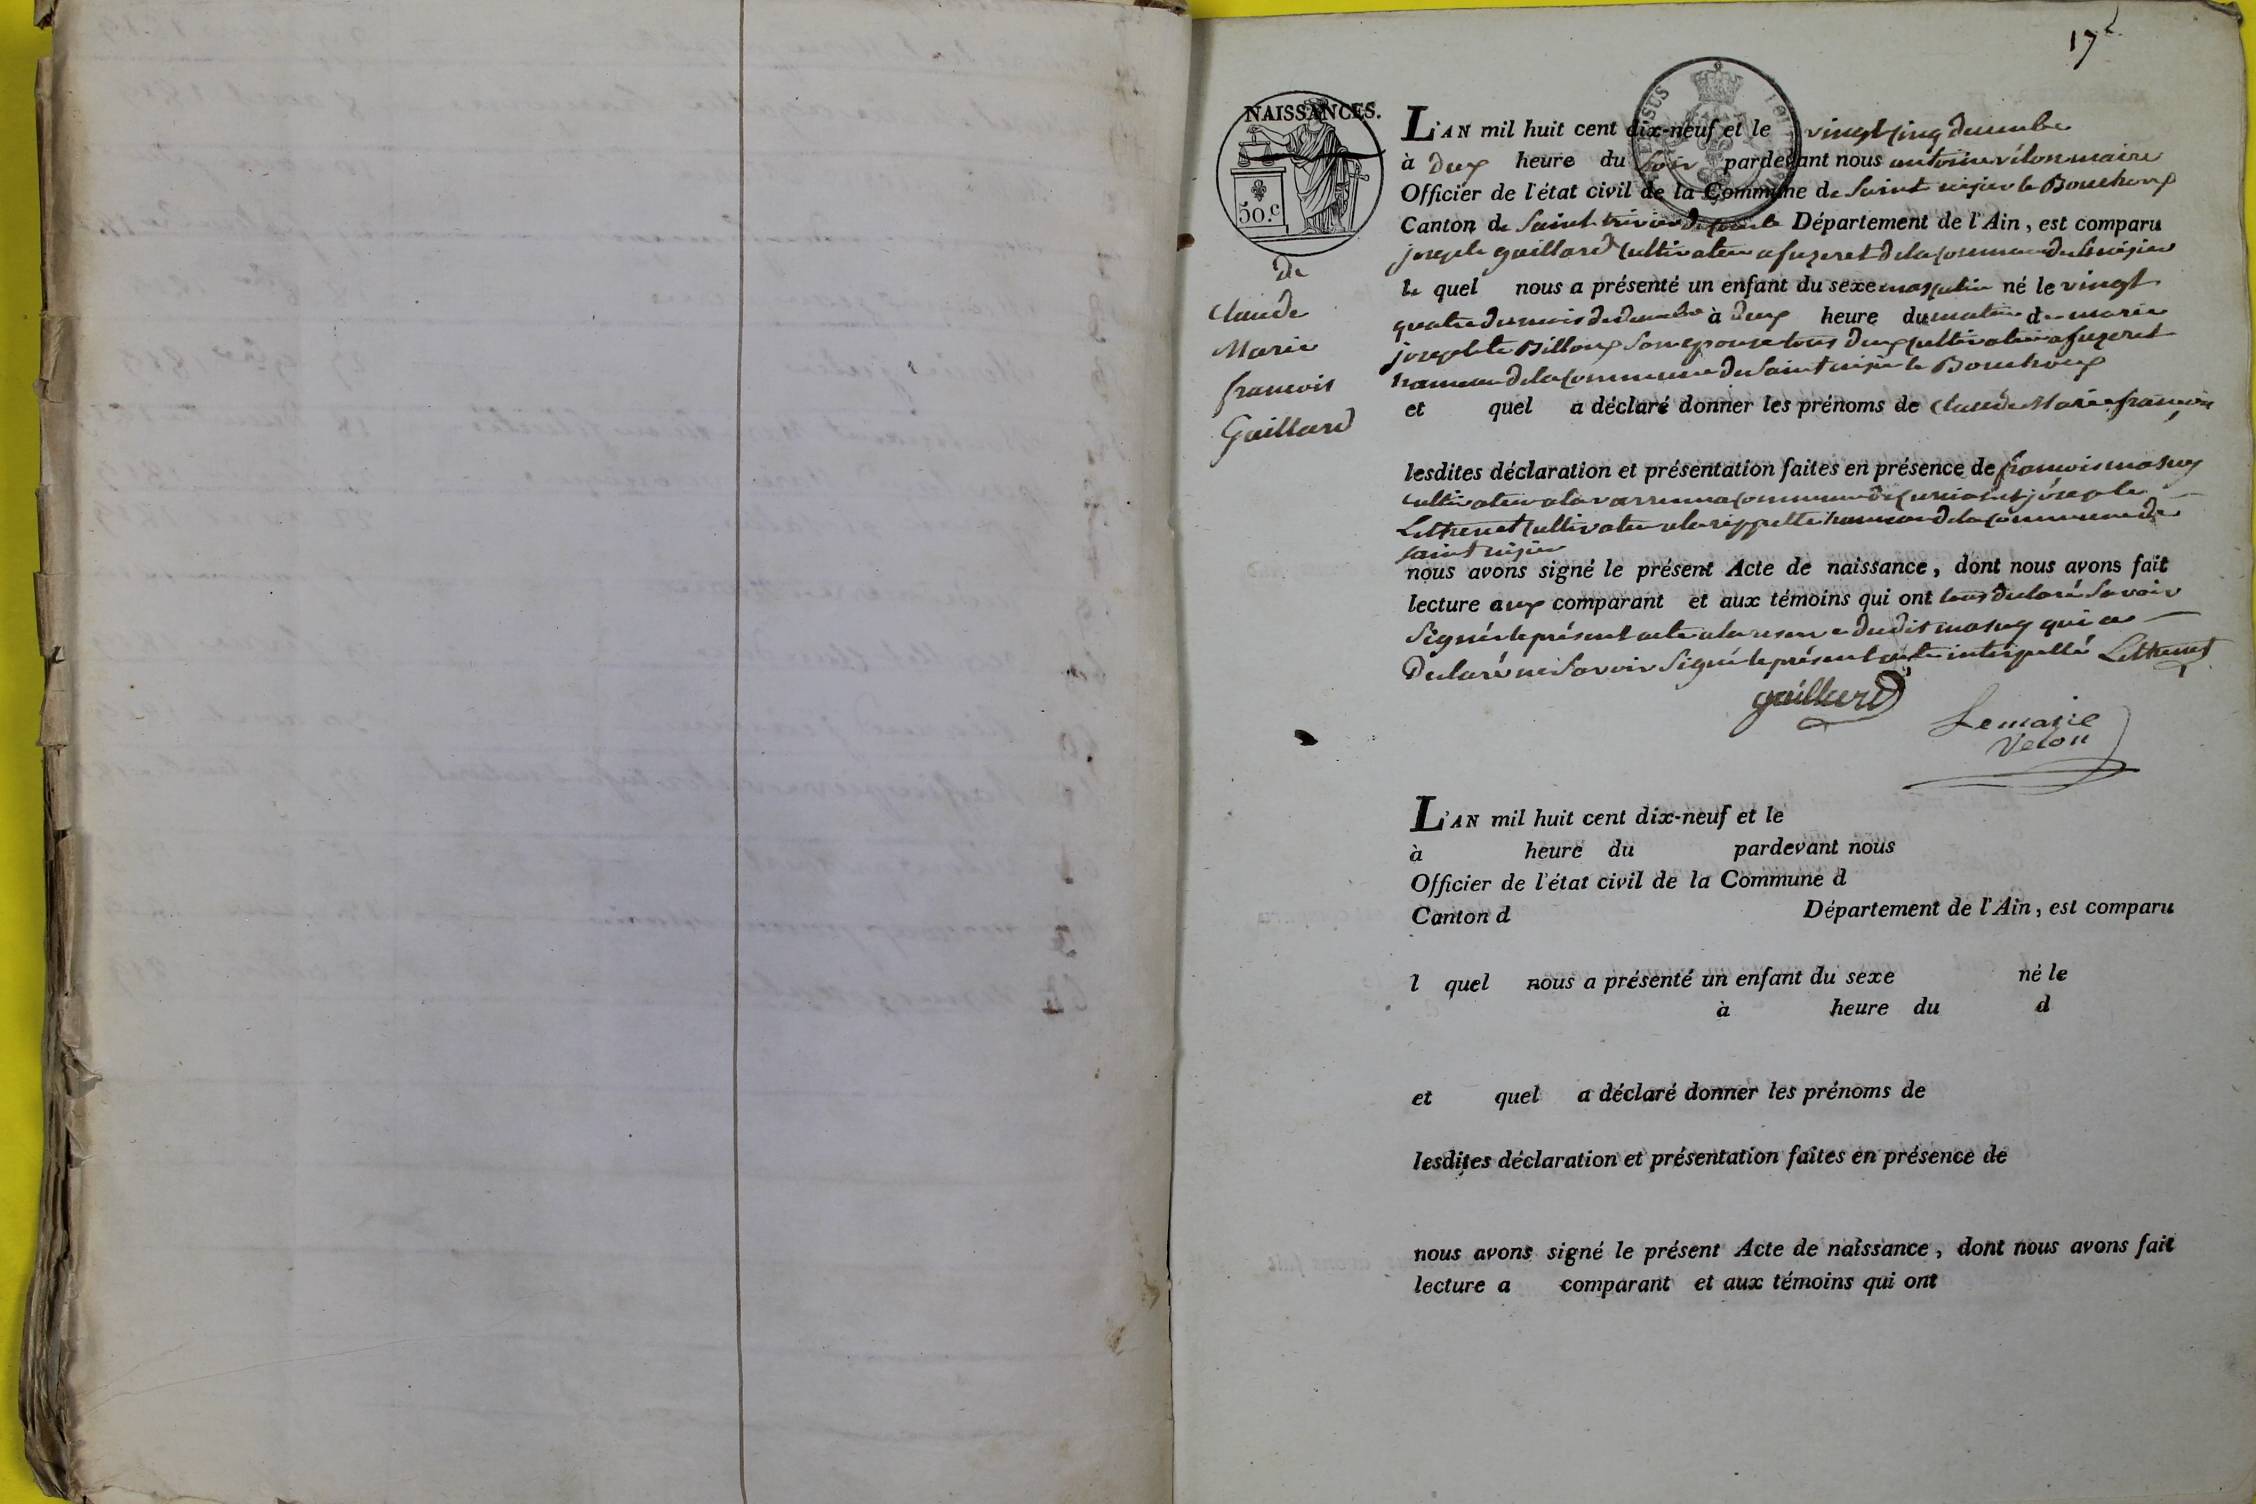 17
NAISSANCES.
50.c
de
Claude
Marie
francois
Gaillard
L'AN mil huit cent dix-neuf et le vingt cinq decembre
à deux heure du soir pardevant nous antoine vélon maire
Officier de l'état civil de la Commune de Saint nisier le Bouchoux
Canton de Saint trivier de Département de l'Ain, est comparu
joseph gaillard cultivateur a fuzeret de la commune de St nisier
le quel nous a présenté un enfant du sexe masculin né le vingt
quatre du mois de decembre à deux heure du matin de marie
josephte Billoux son epouse tous deux cultivateur a fuzeret
hameau de la commune de Saint nisier le Bouchoux
et quel a déclaré donner les prénoms de Claude Marie francois
lesdites déclaration et présentation faites en présence de francois masuy
cultivateur a la commune de et joseph
Lethenet cultivateur a la rippette hameau de la commune de
saint nisier
nous avons signé le présent Acte de naissance, dont nous avons fait
lecture aux comparant et aux témoins qui ont tous declaré Savoir
Signé le présent acte a la reserve dudit masuy qui a
Declaré ne Savoir Signé le présent acte interpellé Lethenet
gaillard
Le maire
Velon
L'AN mil huit cent dix-neuf et le
à heure du pardevant nous
Officier de l'état civil de la Commune d
Canton d Département de l'Ain, est comparu
l quel nous a présenté un enfant du sexe né le
à heure du d
et quel a déclaré donner les prénoms de
lesdites déclaration et présentation faites en présence de
nous avons signé le présent Acte de naissance, dont nous avons fait
lecture a comparant et aux témoins qui ont